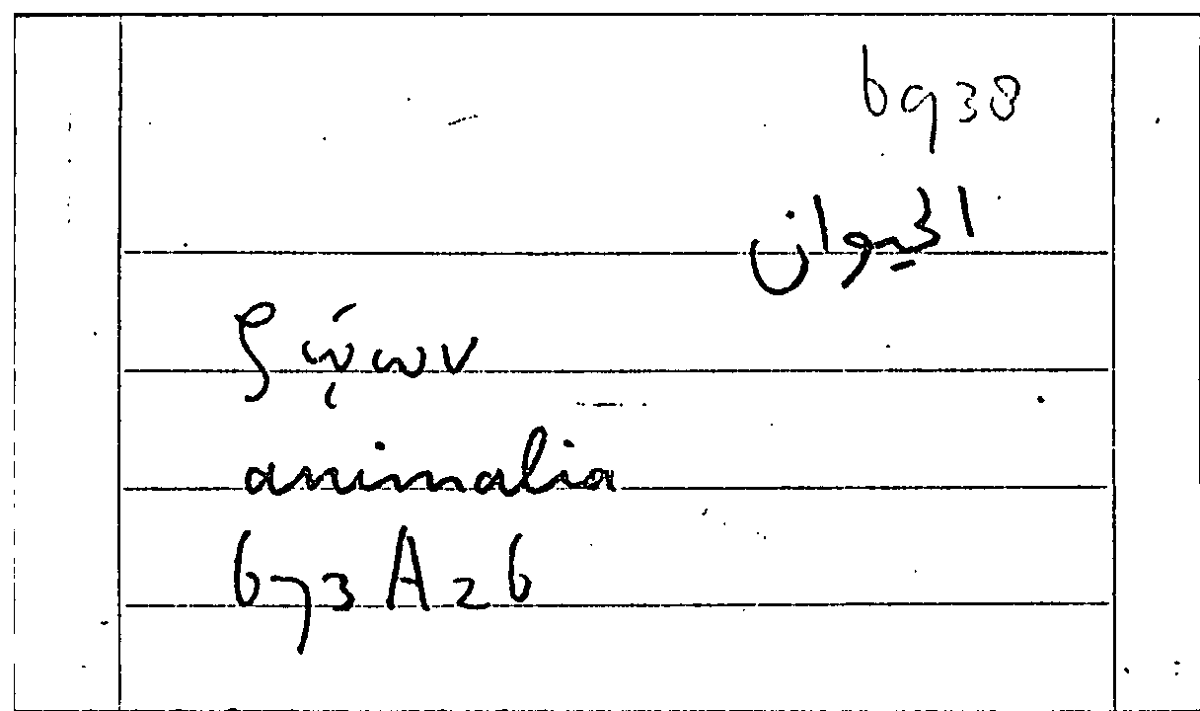 6938
الحيوان
ζῴων
animalia
673A26